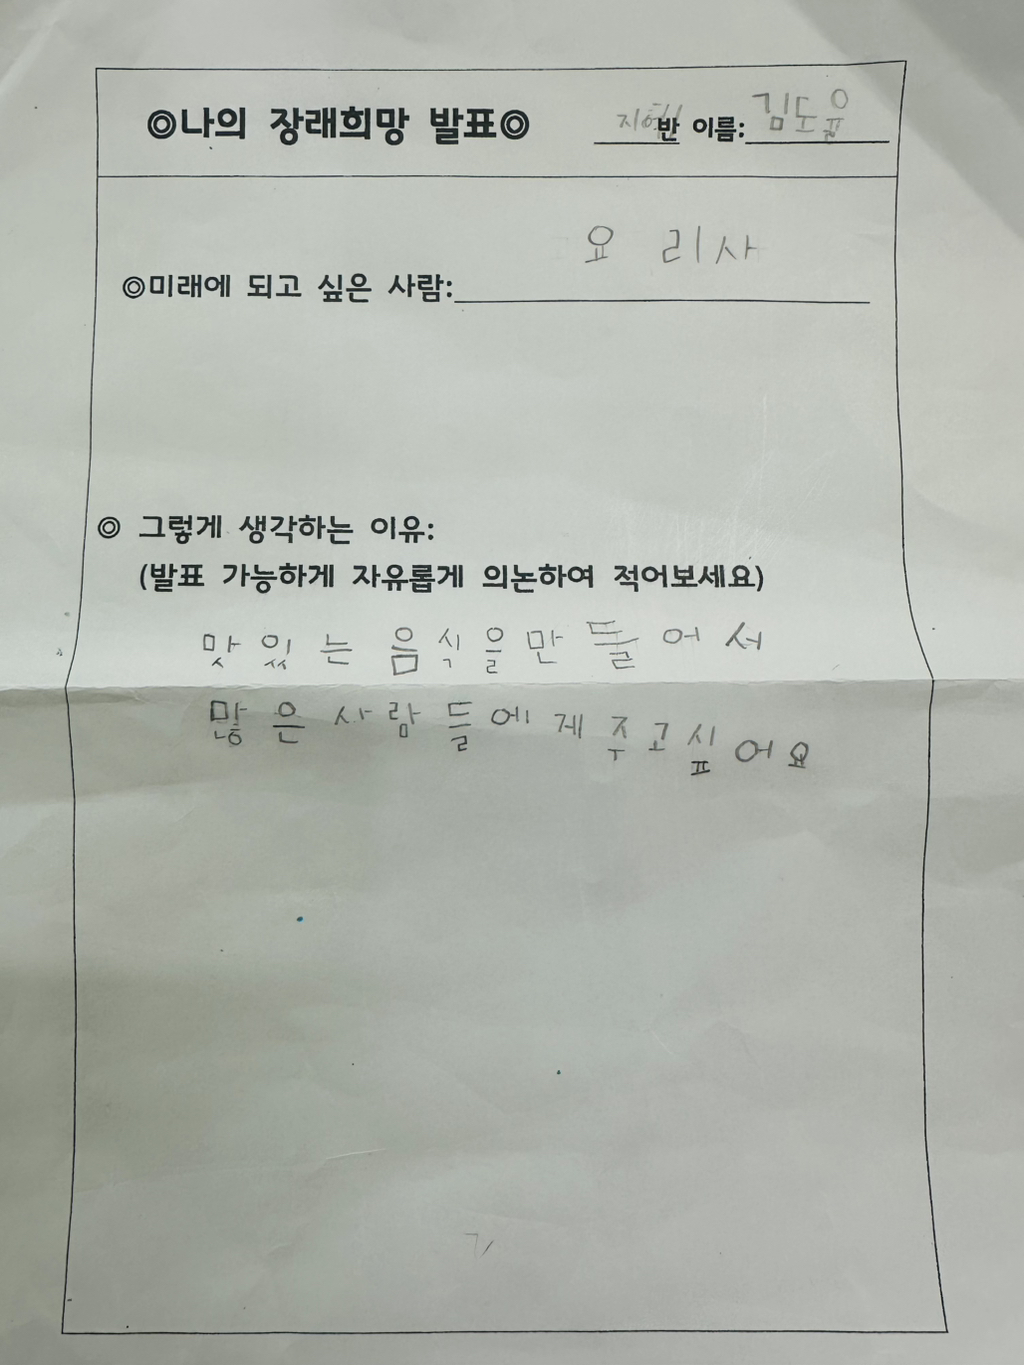 ◎나의 장래희망 발표◎ 지혜반 이름: 김도윤
요리사
◎미래에 되고 싶은 사람:
◎ 그렇게 생각하는 이유:
(발표 가능하게 자유롭게 의논하여 적어보세요)
맛있는 음식을 만들어서
많은 사람들에게 주고싶어요